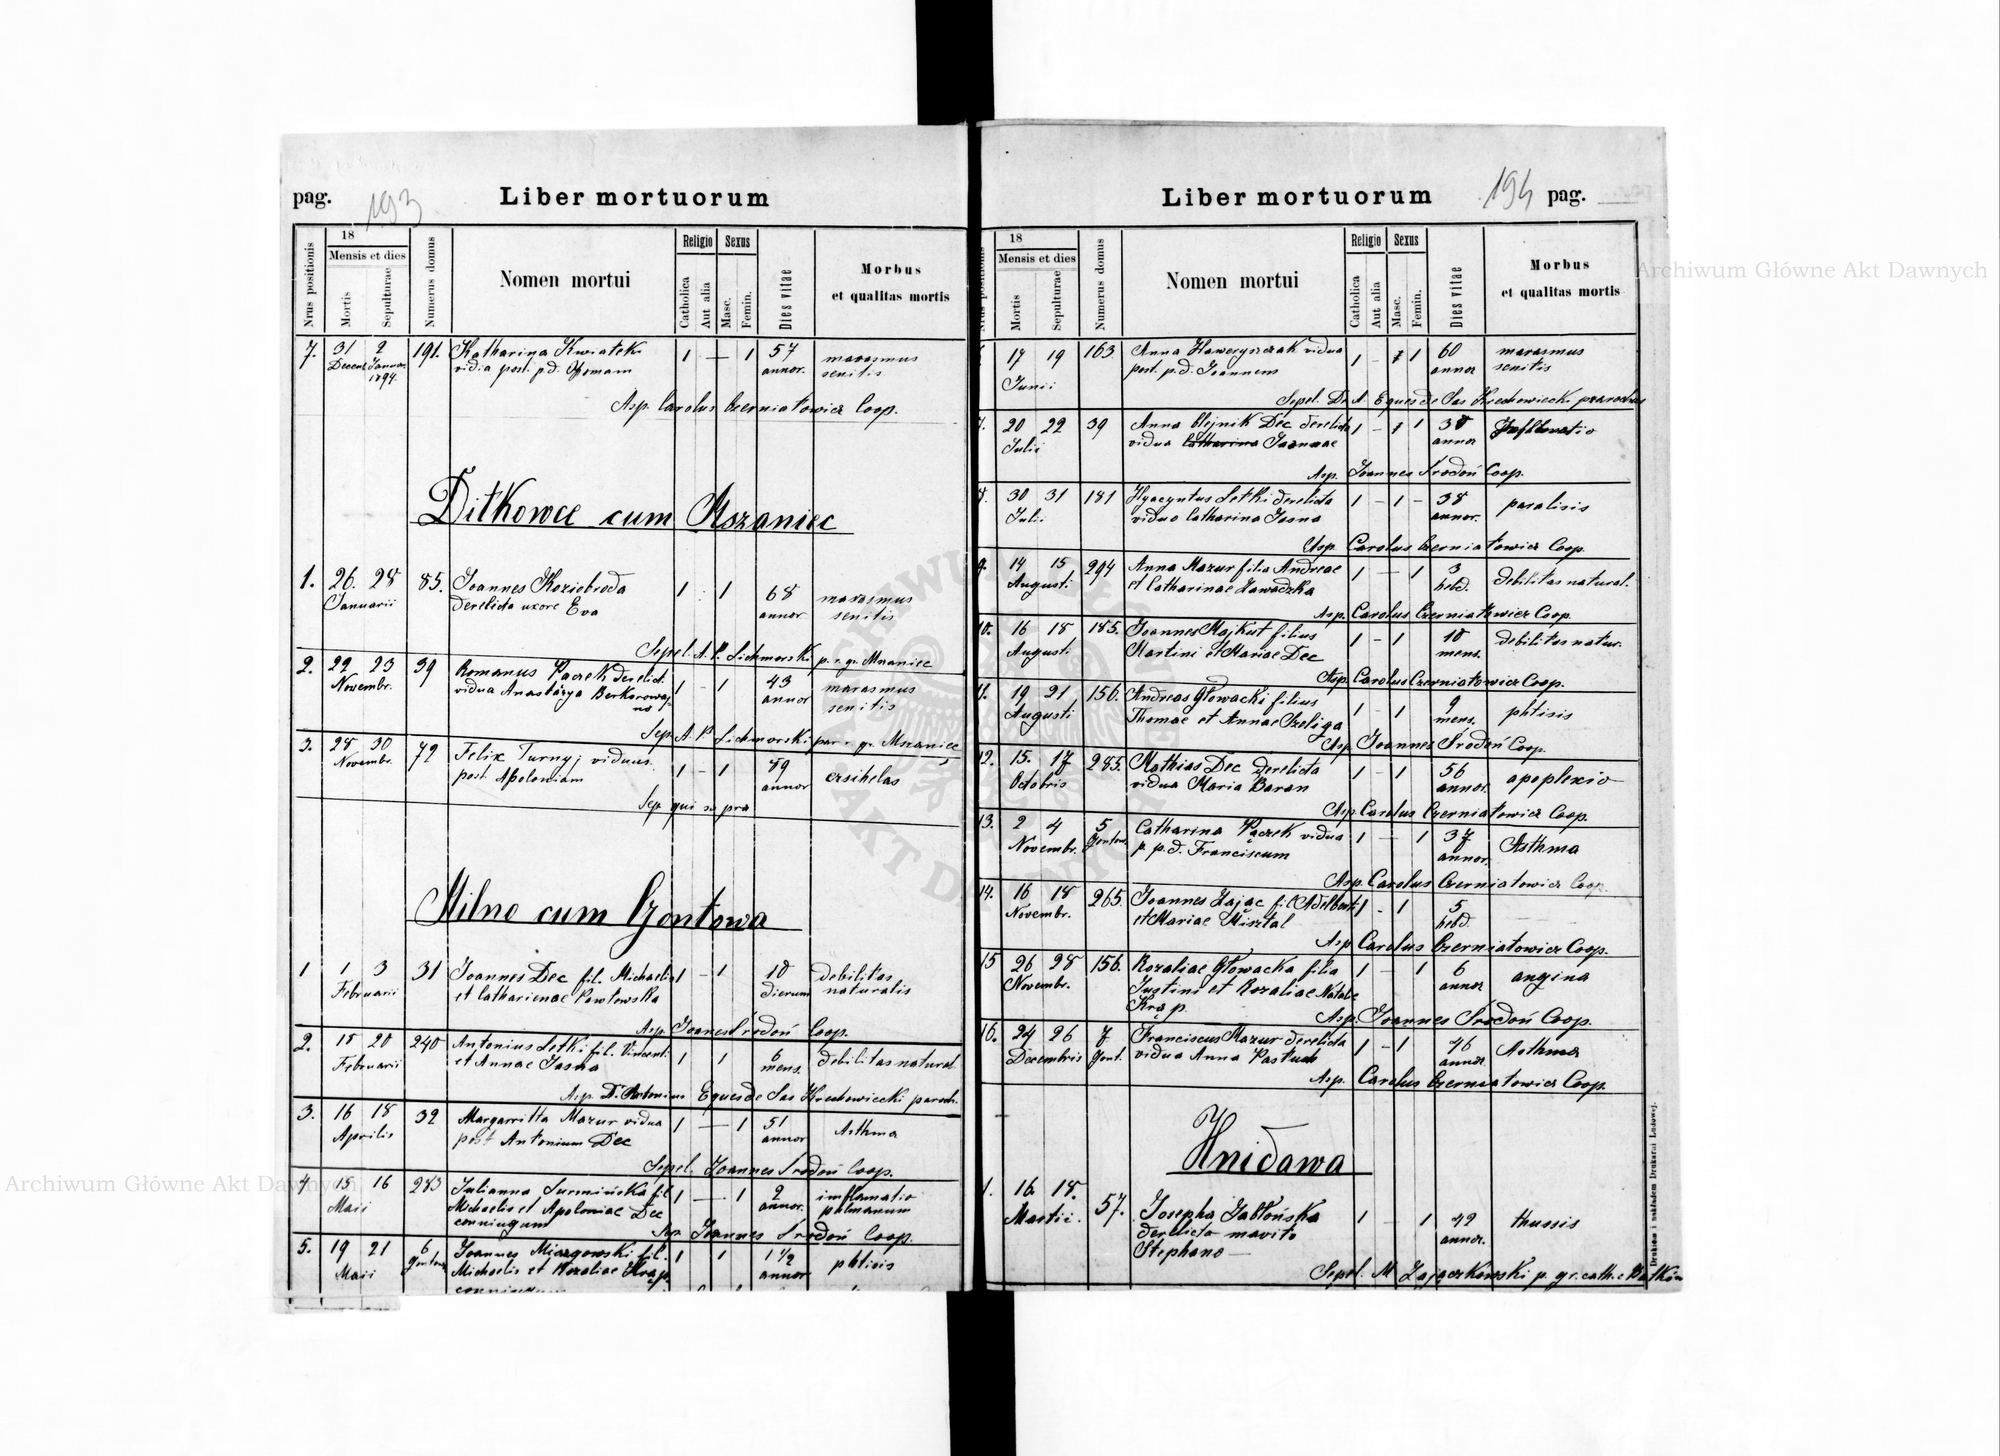 pag. 193
Liber mortuorum
18
Religio Sexus
Mensis et dies
Nrus positionis
Mortis
Sepulturae
Numerus domus
Nomen mortui
Catholica
Aut alia
Masc.
Femin.
Dies vitae
Morbus
et qualitas mortis
7. 31 2 191. Katharina Kwiatek 1 — 1 57 marasmus
Decem. Januar. vidia post. p.d. annor. senitis
1894.
Asp. Carolus Czerniatowicz Coop.
Ditkowce cum Mszaniec
1. 26. 28 85. Joannes Koziebroda 1 1 68 marasmus
Januarii derelicta uxore Eva annor senitis
Sepel. A. P. p. r. gr. Mszaniec
2. 22 23 39 Romanus Paczek derelict. 1 - 1 43 marasmus
Novembr. vidua annor senitis
Sep. A. P. par r. gr. Mszaniec
3. 28 30 72 Felix Turnyj viduus 1 - 1 49 ersihelas
Novembr. post. Apoloniam annor
Sep. qui supra
Milno cum Gontowa
1 1 3 31 Joannes Dec fil. Michaelis 1 - 1 10 debilitas
Februarii et Catharienae dierum naturalis
Asp. Joanes Środoń Coop.
2. 18 20 240 Antonius Letki fil. Vincenti 1 1 6 debilitas natural
Februarii et Annae Jasna mens.
Asp. D. Antonius Eques de Sas Hrechowiecki paroch.
3. 16 18 32 Margarritta Mazur vidua 1 — 1 51 Asthma
Aprilis post Antonium Dec annor
Sepel. Joannes Środoń Coop.
4 15 16 283 Julianna Surmińska fil 1 — 1 2 imflamatio
Maii Michaelis et Apoloniae Dec annor. pulmanum
conningum
Asp. Joannes Środoń Coop.
5. 19 21 6 Joannes Miazgowski fil. 1 1 1 1/2 phtisis
Maii Gontowa Michaelis et Rozaliae Krąp. annor
conningum
Liber mortuorum
194 pag.
18
Religio Sexus
Mensis et dies
Nrus positionis
Mortis
Sepulturae
Numerus domus
Nomen mortui
Catholica
Aut alia
Masc.
Femin.
Dies vitae
Morbus
et qualitas mortis
17 19 163. Anna Haweryszczak vidua 1 - 1 60 marasmus
Junii post. p.d. Joannem annor senitis
Sepel. D. A. Eques de Sas Hrechowiecki parochus
7. 20 22 39 Anna Olejnik Dec derelicto 1 - 1 38
Julii viduo Catharina annor
Asp. Joannes Środoń Coop.
8. 30 31 181 Hyacyntus Letki derelicta 1 - 1 - 38 paralisis
Julii viduo Catharina Jasna annor.
Asp. Carolus Czerniatowicz Coop.
9. 14 15 294 Anna Mazur filia Andreae 1 — 1 3 debilitas natural.
Augusti et Catharinae Zawadzka hebd.
Asp. Carolus Czerniatowicz Coop.
10. 16 18 185. Joannes Majkut filius 1 - 1 10 debilitas natur.
Augusti Martini et Mariae Dec mens.
Asp. Carolus Czerniatowicz Coop.
11. 19 21 156. Andreas Głowacki filius 1 - 1 9 phtisis
Augusti Thomae et Annae Szeliga mens.
Asp. Joannes Środoń Coop.
12. 15. 17 285. Mathias Dec derelicta 1 - 1 56 apoplexio
Octobris vidua Maria Baran annor.
Asp. Carolus Czerniatowicz Coop.
13. 2 4 5 Catharina Pączek vidua 1 — 1 37 Asthma
Novembr. Gontow. p. p.d. Franciscum annor.
Asp. Carolus Czerniatowicz Coop.
14. 16 18 265. Joannes Zając fil. Adelberti 1 - 1 5
Novembr. et Mariae Misztal hebd.
Asp. Carolus Czerniatowicz Coop.
15 26 28 156. Rozaliae Głowacka filia 1 — 1 6 angina
Novembr. Justini et Rozaliae Natalie annor
Krąp.
Asp. Joannes Środoń Coop.
16. 24 26 7 Franciscus Mazur derelicta 1 - 1 76 Asthma
Decembris Gont. vidua Anna Pastuch annor.
Asp. Carolus Czerniatowicz Coop.
Hnidawa
1. 16. 18. 57. Josepha Jabłońska 1 — 1 42 thussis
Martii. derelicto marito annor.
Stephano —
Sepel. M Zajączkowski p. gr. cath. e
Drukiem i nakładem Drukarni Ludowej.
Archiwum Główne Akt Dawnych
Archiwum Główne Akt Dawnych